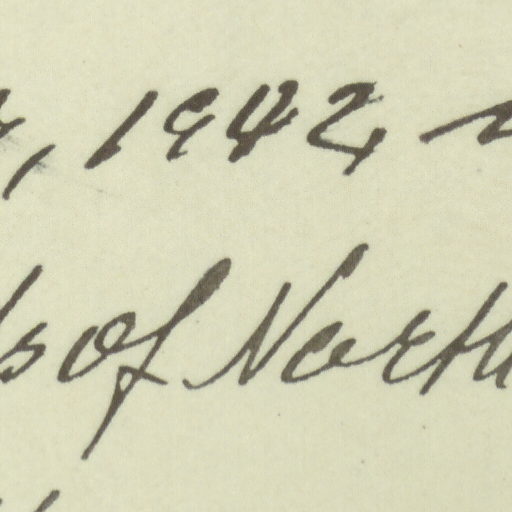 , 1942
s of North